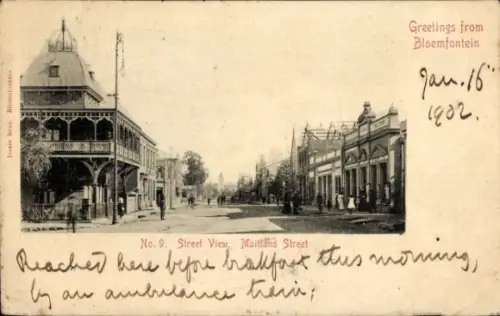 Greetings from
Bloemfontein
Jan. 16
1902.
No. 9. Street View, Maitland Street
Reached here before breakfast this morning,
by an ambulance train;